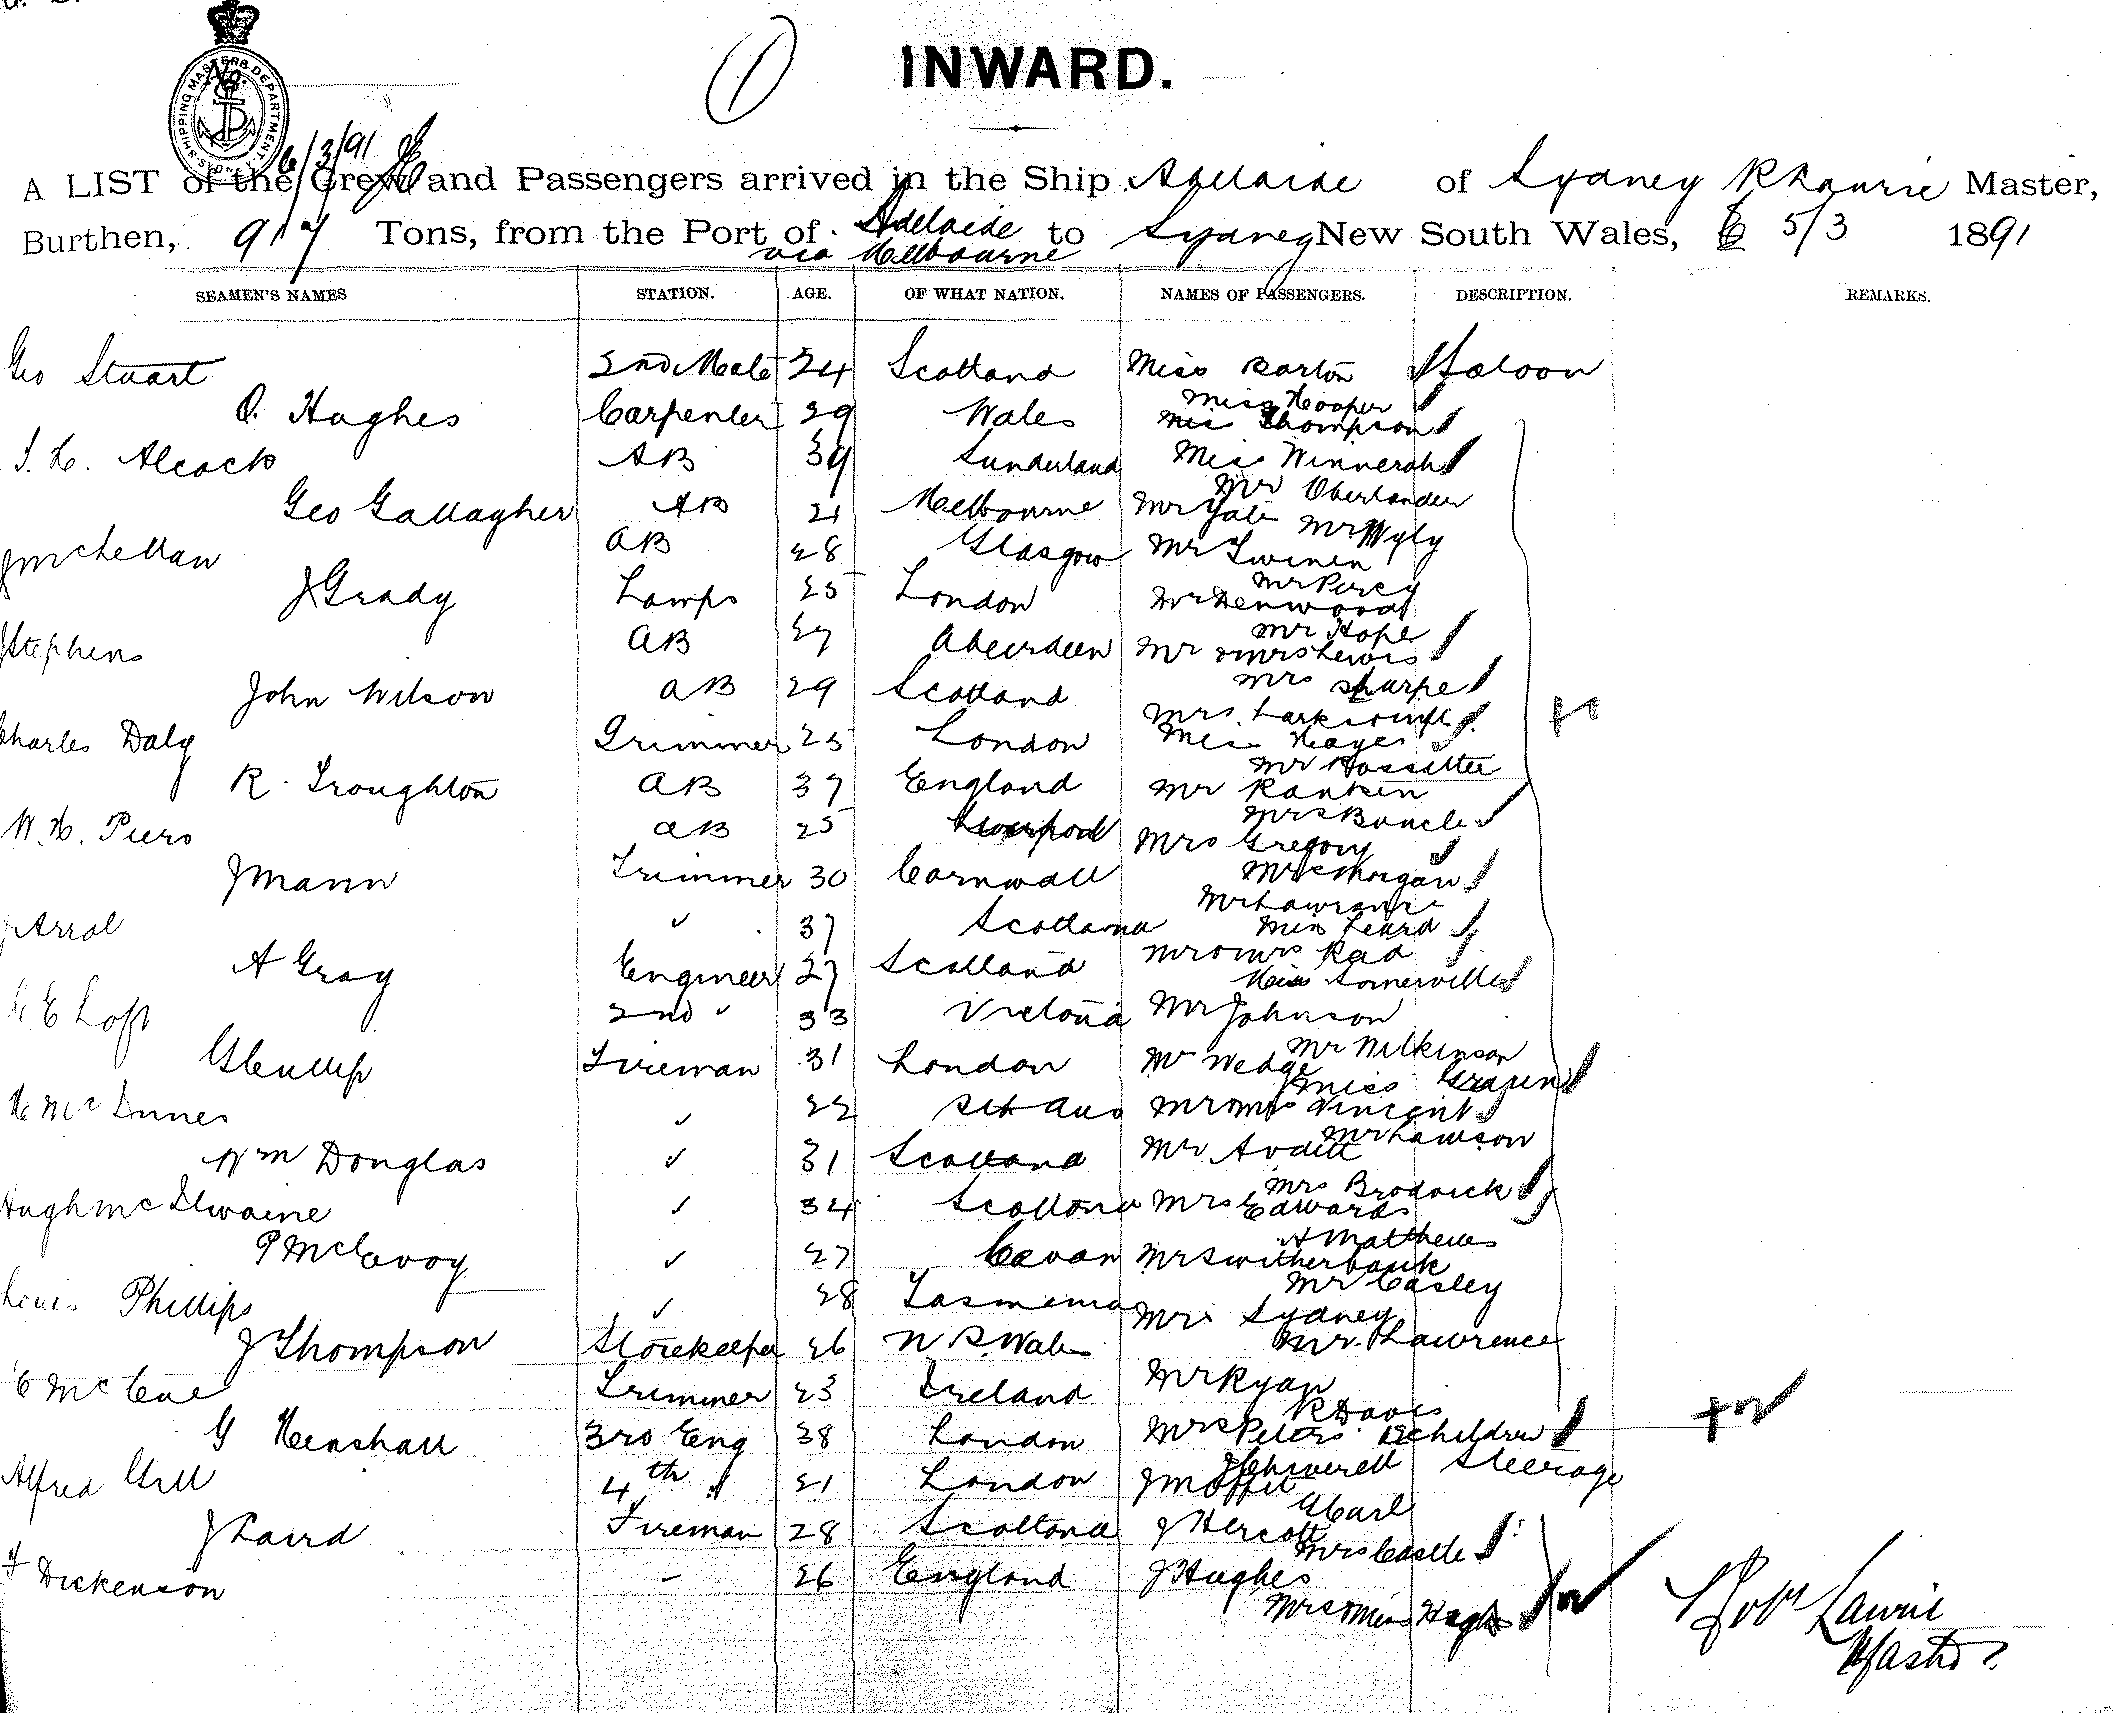 INWARD.
A LIST of the Crew and Passengers arrived in the Ship Adelaide of Sydney R Laurie Master,
Burthen, 917 Tons, from the Port of Adelaide to Sydney New South Wales, 5/3 1891
via Melbourne
SEAMEN'S NAMES STATION. AGE. OF WHAT NATION. NAMES OF PASSENGERS. DESCRIPTION. REMARKS.
Geo Stuart 2nd Mate 24 Scotland Miss Barton Saloon
Miss Hooper
O. Hughes Carpenter 29 Wales Miss Thompson
Alcock AB 39 Sunderland Miss Winnerah
Mr Oberlander
Geo Gallagher AB 21 Melbourne Mr Yale Mr Wyly
J McLellan AB 28 Glasgow Mr
Mr Percy
J Grady Lamps 25 London Mr Denwood
Mr Hope
J Stephens AB 27 Aberdeen Mr & Mrs Lewis
Mrs Sharpe
John Wilson AB 29 Scotland Mrs
Charles Daly Trimmer 25 London Miss Hayes
Mr Rossetter
R. Troughton AB 37 England Mr Rankin
Mrs Buncle
W. H. Piers AB 25 Liverpool Mrs Gregory
Mrs Morgan
J Mann Trimmer 30 Cornwall Mr Lawrance
J Arrol " 37 Scotland Miss Leard
Mr & Mrs Rea
A Gray Engineer 27 Scotland Miss Somerville
E Loft 2nd " 33 Victoria Mr Johnson
Mr Wilkinson
Fireman 31 London Mr Wedge
Miss
McInnes " 22 Sth Aus Mr & Mrs Vincent
Mr Lawson
Wm Douglas " 31 Scotland Mr
Mrs Brodrick
Hugh McIlwaine " 34 Scotland Mrs Edwards
A Matthews
P McEvoy " 27 Cavan Mr Switherbank
Mr Casley
Louis Phillips " 28 Tasmania Mr Sydney
J Thompson Storekeeper 26 N S. Wales Mr. Lawrence
McCue Trimmer 23 Ireland Mr Ryan
R Davis
G Henshall 3rd Eng 38 London Mrs Peters & children
Steerage
Alfred Gill 4th " 21 London J Moffit
G Carl
J Laird Fireman 28 Scotland J Hercott
Mrs Castle
Dickenson " 26 England J Hughes
Mrs & Miss
Robt Laurie
Master